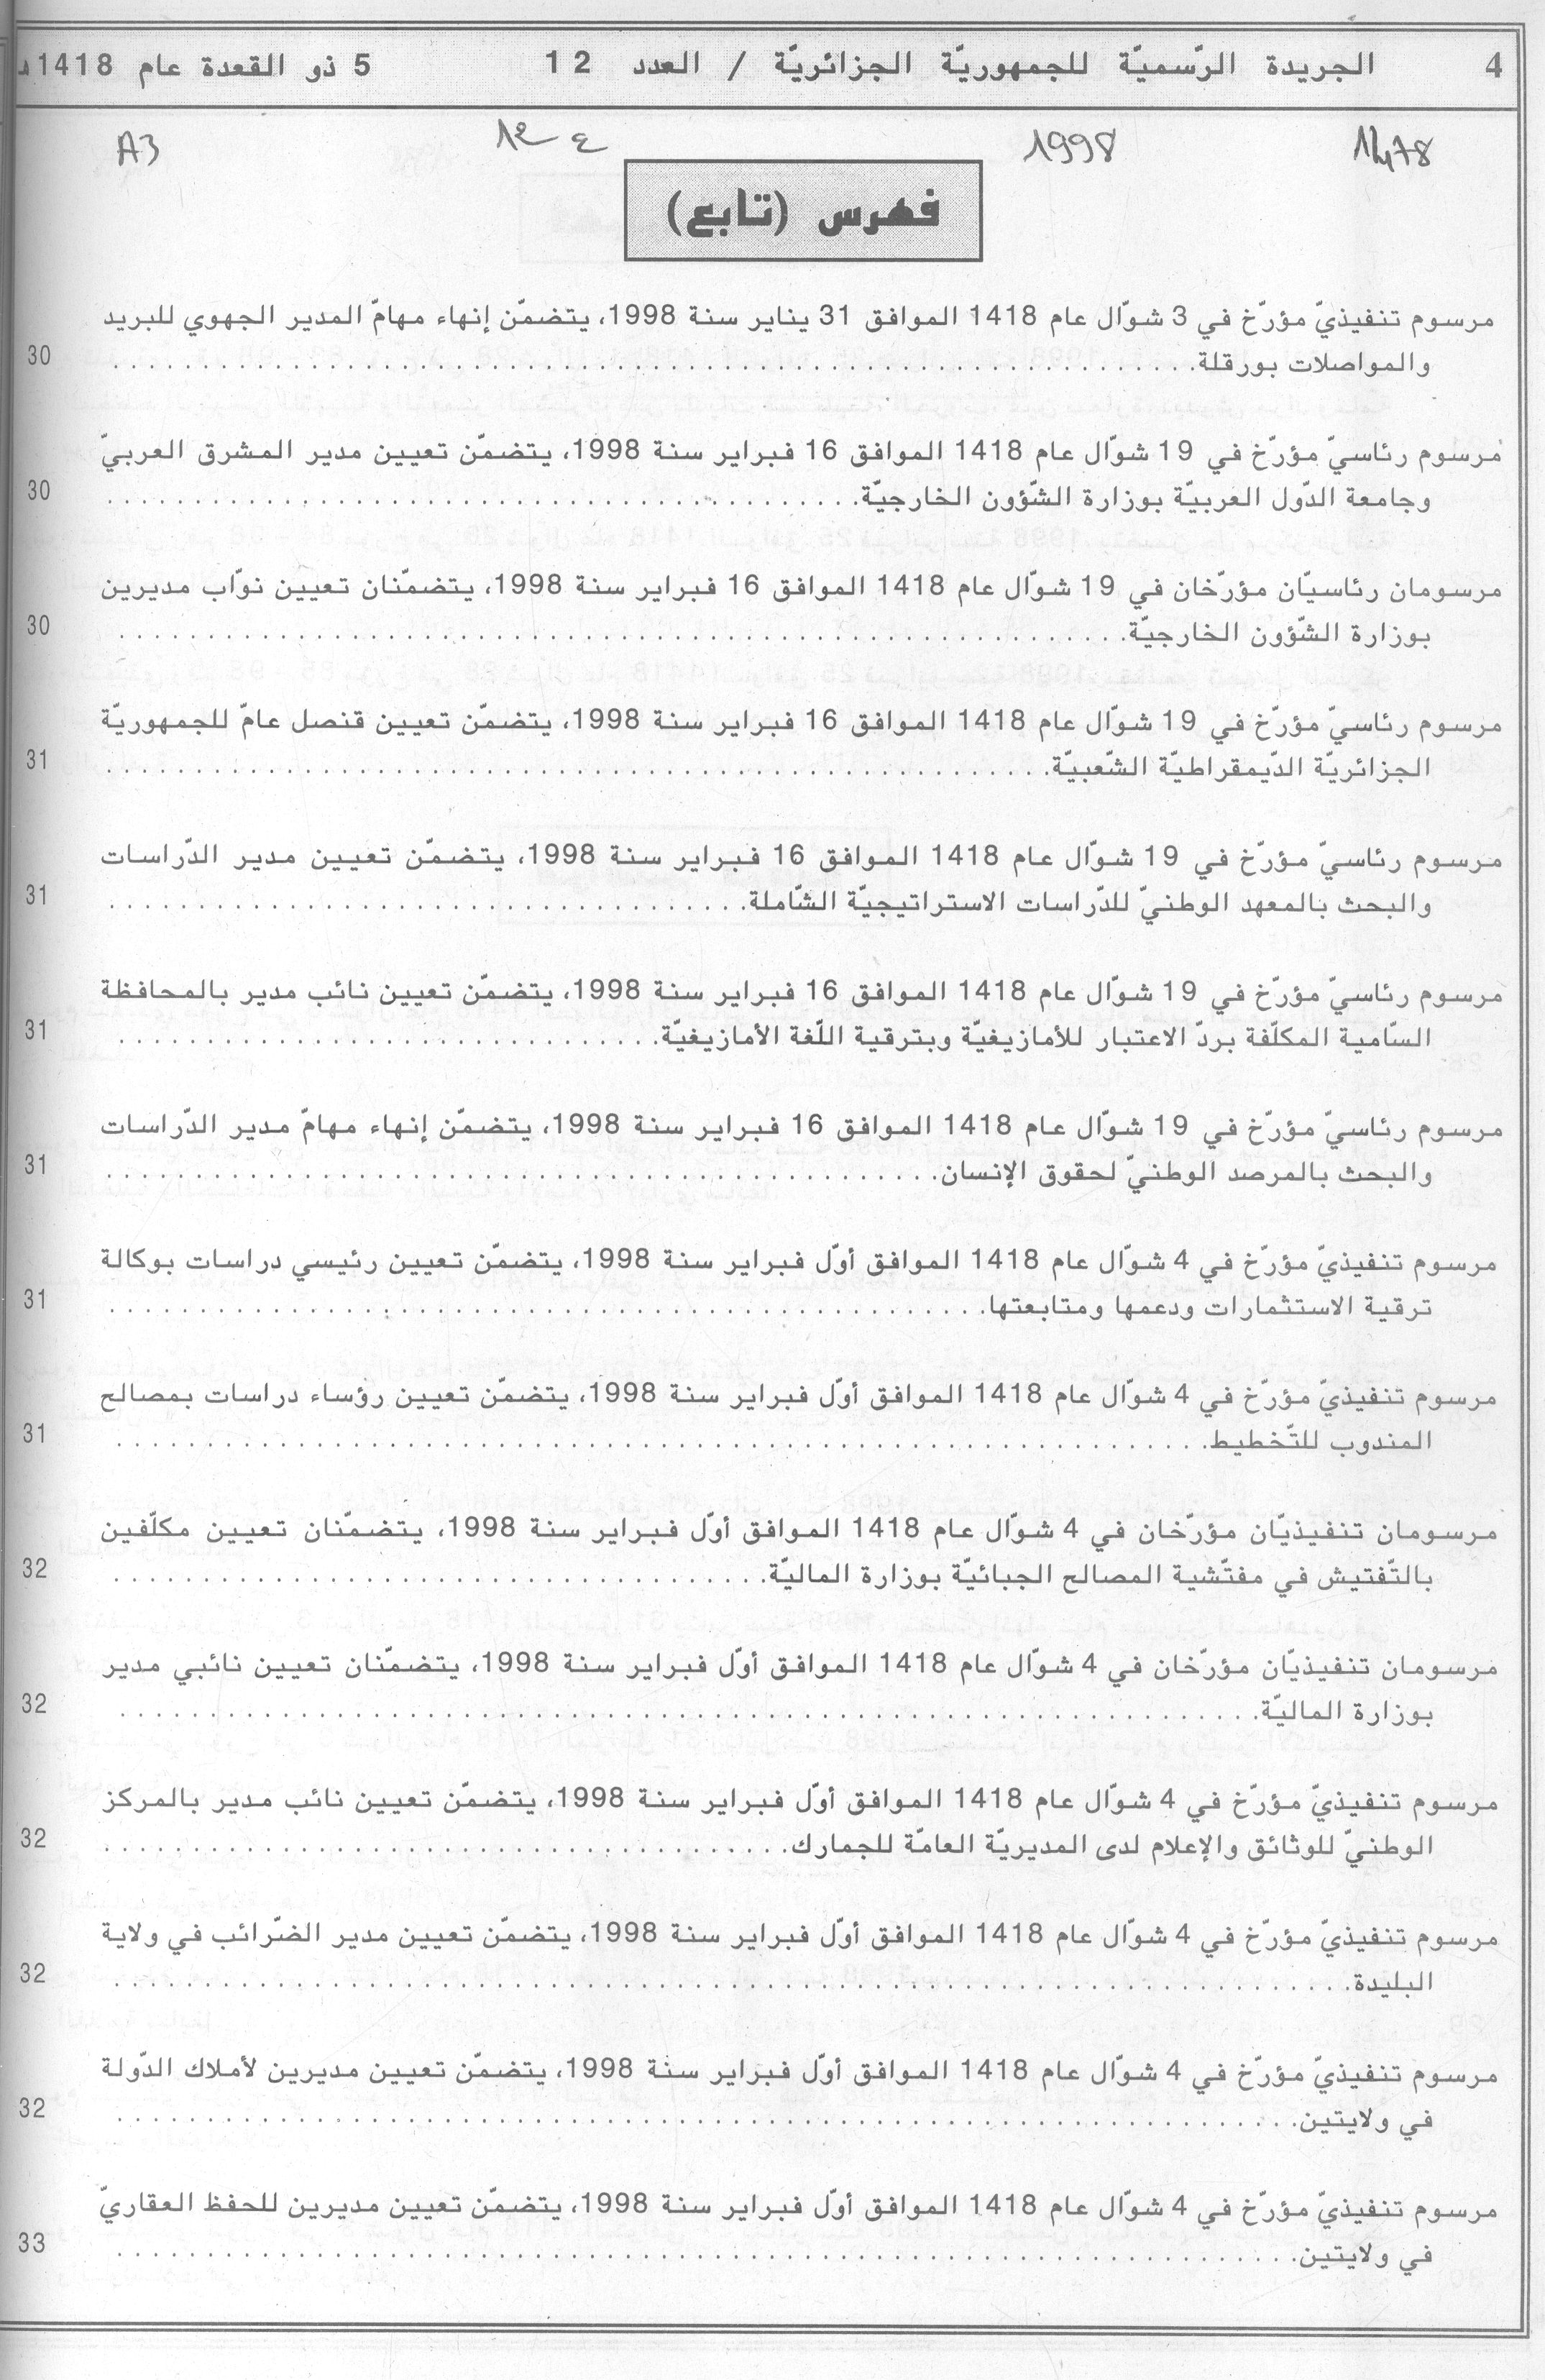 4 الجريدة الرّسميّة للجمهوريّة الجزائريّة / العدد 12 5 ذو القعدة عام 1418هـ
1998 A3
فهرس (تابع)
مرسوم تنفيذيّ مؤرّخ في 3 شوّال عام 1418 الموافق 31 يناير سنة 1998، يتضمّن إنهاء مهامّ المدير الجهوي للبريد
والمواصلات بورقلة. 30
مرسوم رئاسيّ مؤرّخ في 19 شوّال عام 1418 الموافق 16 فبراير سنة 1998، يتضمّن تعيين مدير المشرق العربيّ
وجامعة الدّول العربيّة بوزارة الشّؤون الخارجيّة. 30
مرسومان رئاسيّان مؤرّخان في 19 شوّال عام 1418 الموافق 16 فبراير سنة 1998، يتضمّنان تعيين نوّاب مديرين
بوزارة الشّؤون الخارجيّة. 30
مرسوم رئاسيّ مؤرّخ في 19 شوّال عام 1418 الموافق 16 فبراير سنة 1998، يتضمّن تعيين قنصل عامّ للجمهوريّة
الجزائريّة الدّيمقراطيّة الشّعبيّة. 31
مرسوم رئاسيّ مؤرّخ في 19 شوّال عام 1418 الموافق 16 فبراير سنة 1998، يتضمّن تعيين مدير الدّراسات
والبحث بالمعهد الوطنيّ للدّراسات الاستراتيجيّة الشّاملة. 31
مرسوم رئاسيّ مؤرّخ في 19 شوّال عام 1418 الموافق 16 فبراير سنة 1998، يتضمّن تعيين نائب مدير بالمحافظة
السّامية المكلّفة بردّ الاعتبار للأمازيغيّة وبترقية اللّغة الأمازيغيّة. 31
مرسوم رئاسيّ مؤرّخ في 19 شوّال عام 1418 الموافق 16 فبراير سنة 1998، يتضمّن إنهاء مهامّ مدير الدّراسات
والبحث بالمرصد الوطنيّ لحقوق الإنسان. 31
مرسوم تنفيذيّ مؤرّخ في 4 شوّال عام 1418 الموافق أوّل فبراير سنة 1998، يتضمّن تعيين رئيسي دراسات بوكالة
ترقية الاستثمارات ودعمها ومتابعتها. 31
مرسوم تنفيذيّ مؤرّخ في 4 شوّال عام 1418 الموافق أوّل فبراير سنة 1998، يتضمّن تعيين رؤساء دراسات بمصالح
المندوب للتّخطيط. 31
مرسومان تنفيذيّان مؤرّخان في 4 شوّال عام 1418 الموافق أوّل فبراير سنة 1998، يتضمّنان تعيين مكلّفين
بالتّفتيش في مفتّشية المصالح الجبائيّة بوزارة الماليّة. 32
مرسومان تنفيذيّان مؤرّخان في 4 شوّال عام 1418 الموافق أوّل فبراير سنة 1998، يتضمّنان تعيين نائبي مدير
بوزارة الماليّة. 32
مرسوم تنفيذيّ مؤرّخ في 4 شوّال عام 1418 الموافق أوّل فبراير سنة 1998، يتضمّن تعيين نائب مدير بالمركز
الوطنيّ للوثائق والإعلام لدى المديريّة العامّة للجمارك. 32
مرسوم تنفيذيّ مؤرّخ في 4 شوّال عام 1418 الموافق أوّل فبراير سنة 1998، يتضمّن تعيين مدير الضّرائب في ولاية
البليدة. 32
مرسوم تنفيذيّ مؤرّخ في 4 شوّال عام 1418 الموافق أوّل فبراير سنة 1998، يتضمّن تعيين مديرين لأملاك الدّولة
في ولايتين. 32
مرسوم تنفيذيّ مؤرّخ في 4 شوّال عام 1418 الموافق أوّل فبراير سنة 1998، يتضمّن تعيين مديرين للحفظ العقاريّ
في ولايتين. 33